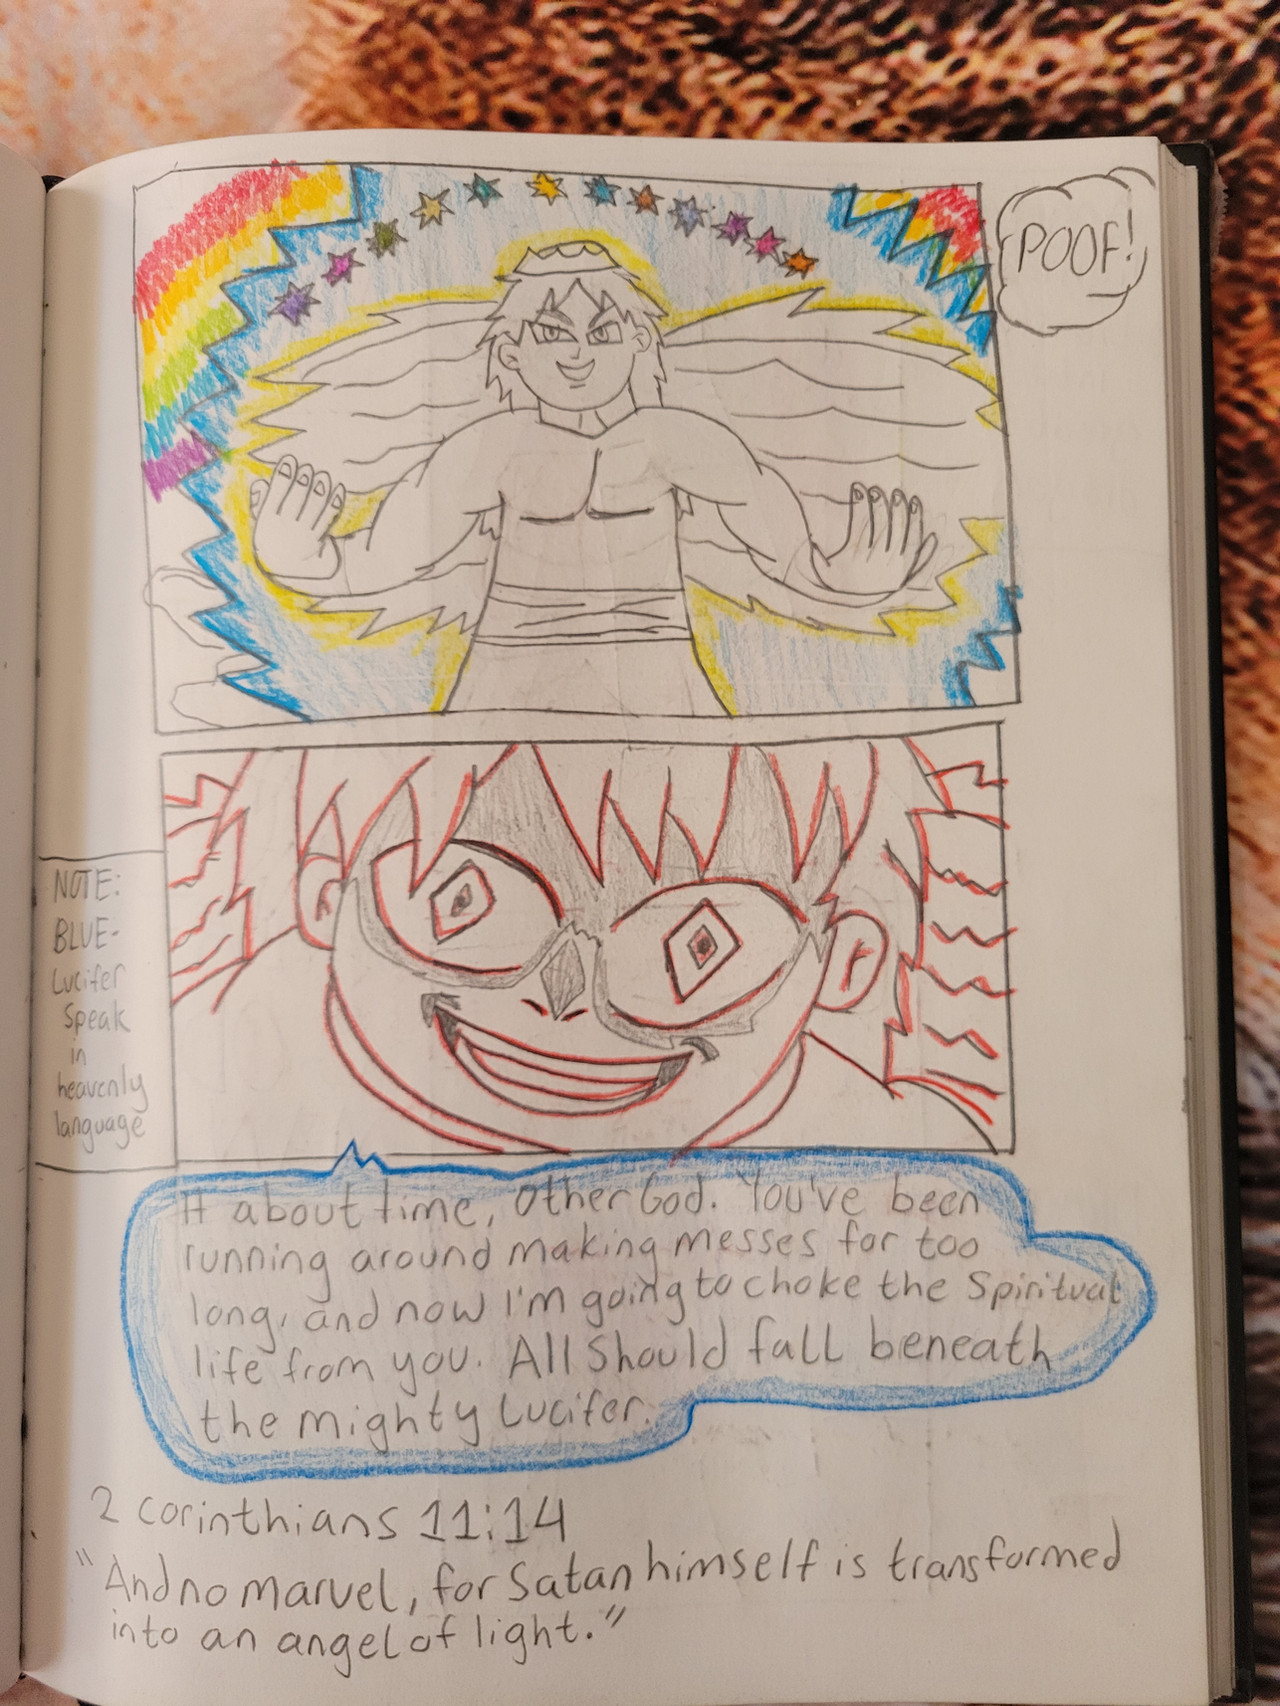 POOF!
NOTE:
BLUE-
Lucifer
Speak
in
heavenly
language
It about time, Other God. You've been
running around making messes for too
long, and now I'm going to choke the Spiritual
life from you. All Should fall beneath
the mighty Lucifer.
2 corinthians 11:14
"And no marvel, for Satan himself is transformed
into an angel of light."